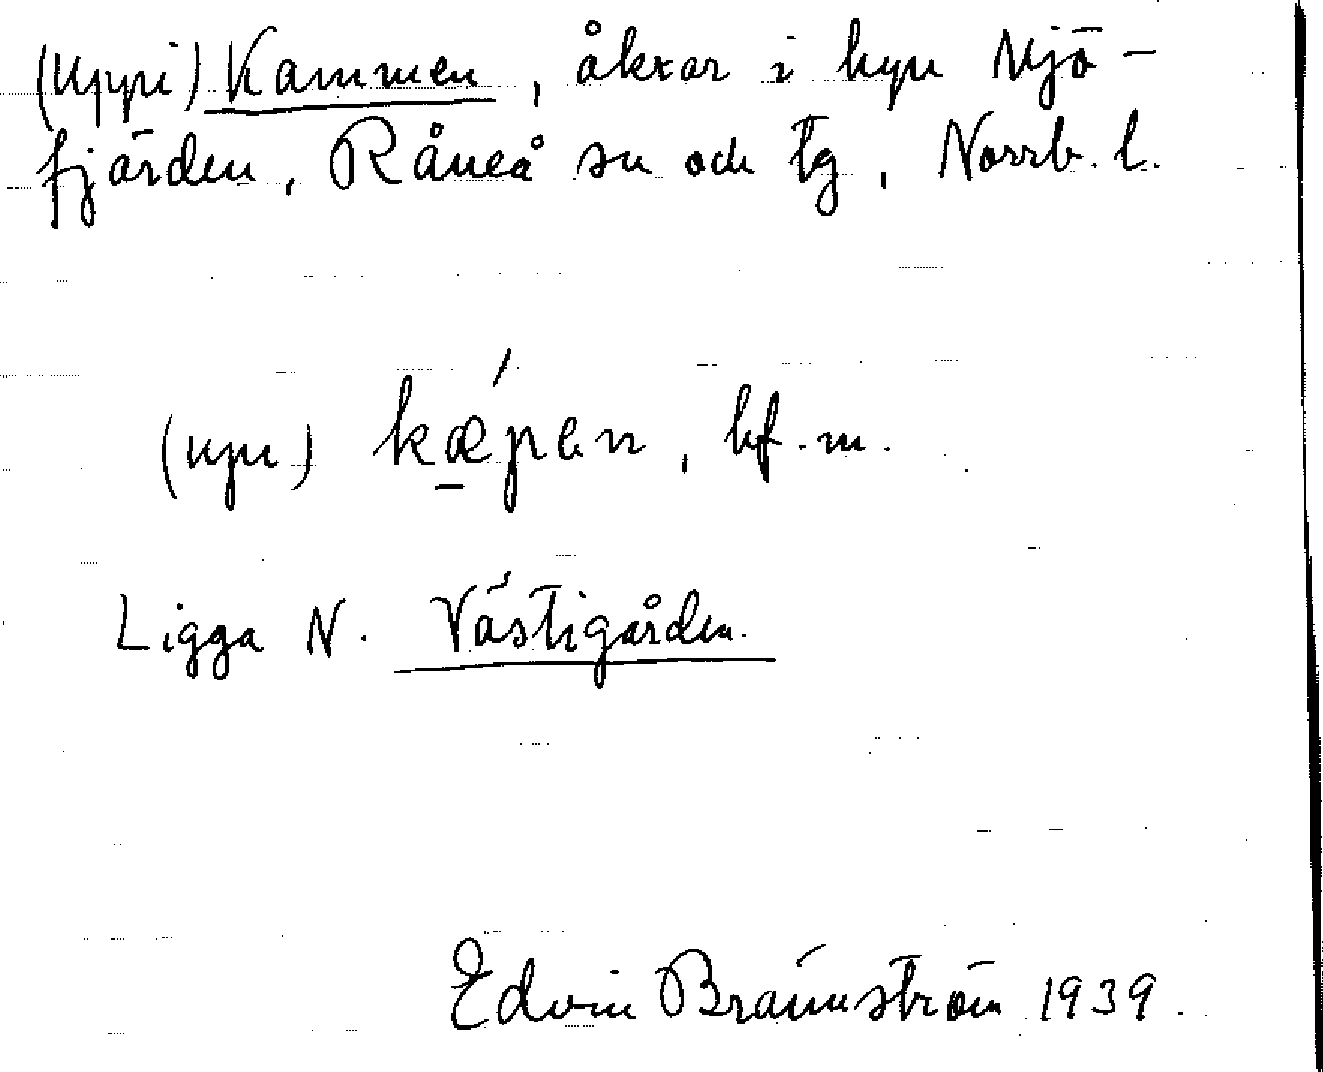 (Uppi) Kammen, åkrar i byn Mjö-
fjärden, Råneå sn och tg, Norrb. l.
(upi) , bf. m.
Ligga N. Västigården.
Edvin Brännström 1939.